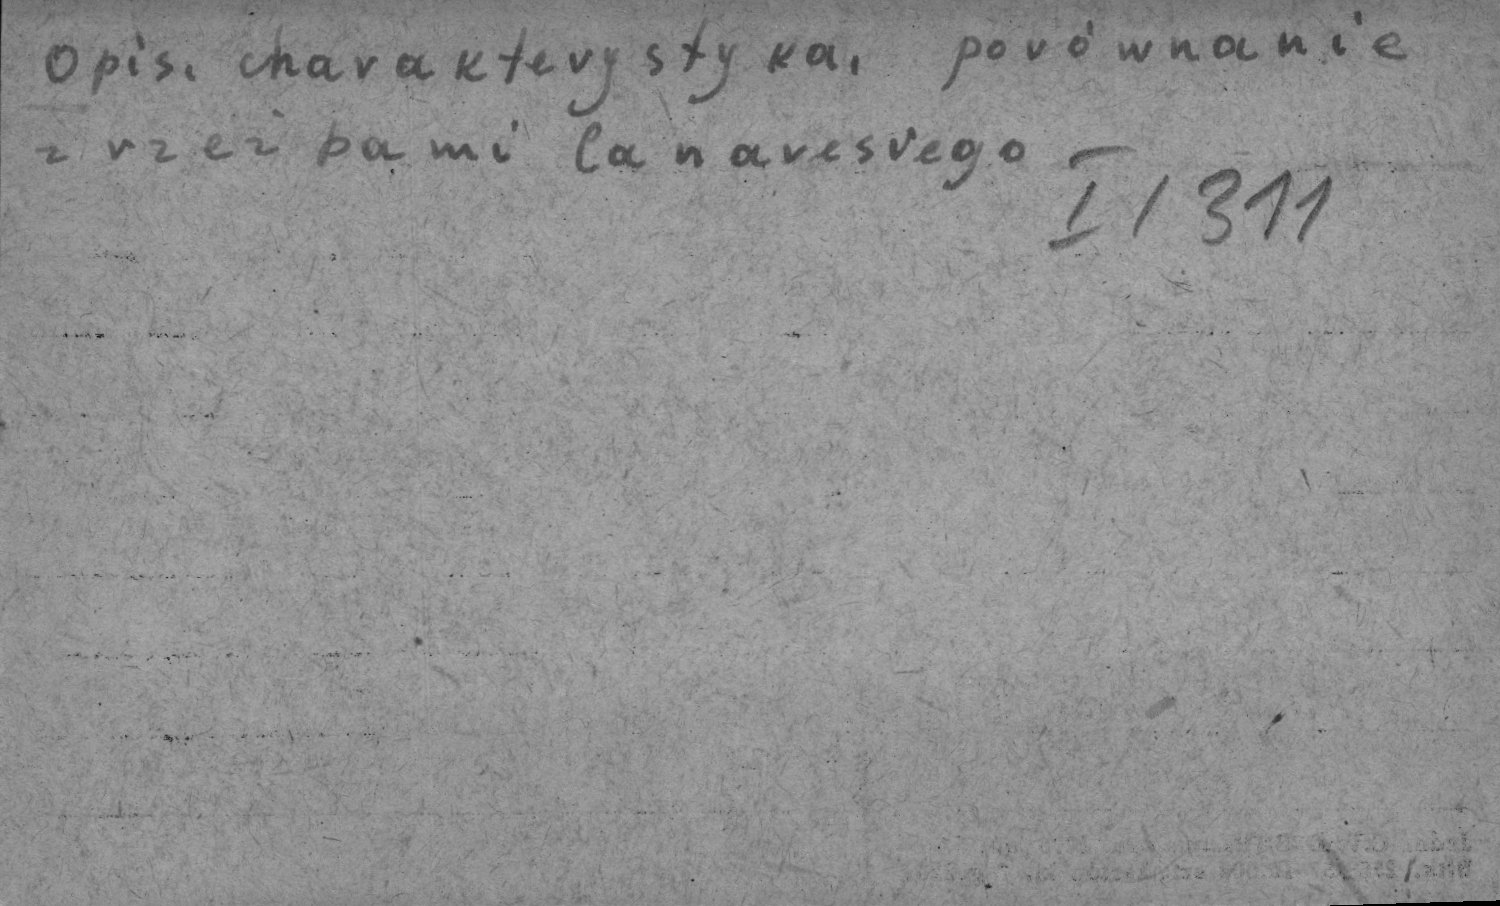 Opis, charakterystyka, porównanie
z rzeźbami Canavesiego
I/311